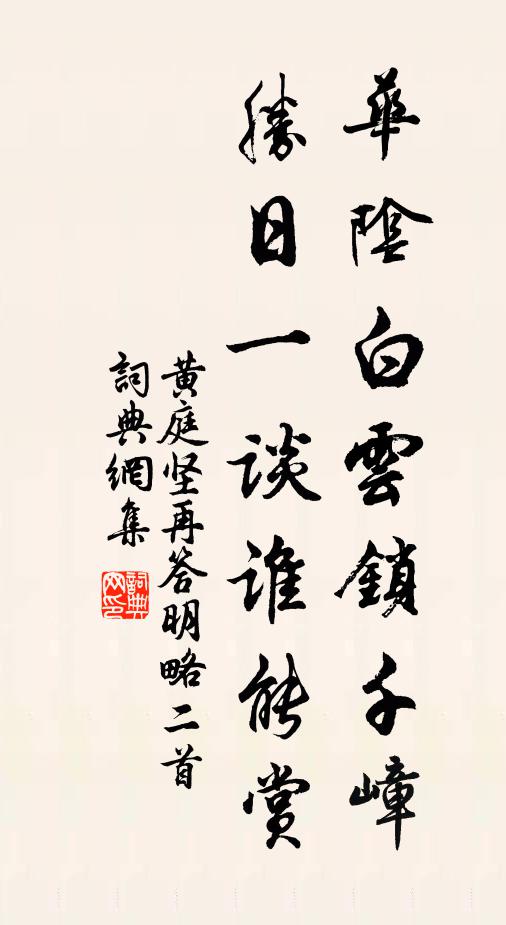 華陰白雲鎖千嶂
勝日一談誰能賞
黄庭坚再答明略二首
詞典網集
詞典网印